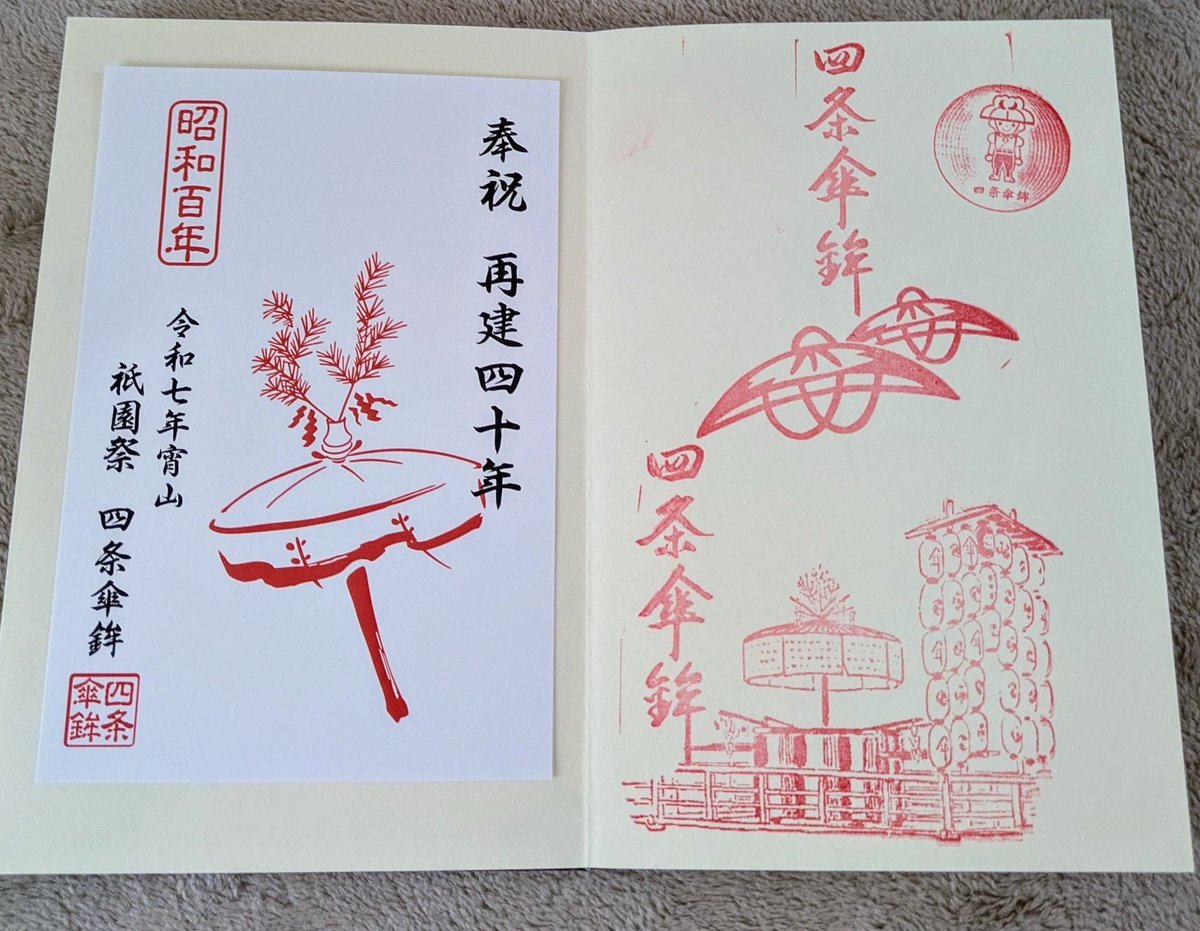 奉祝 再建四十年
昭和百年
令和七年宵山
祇園祭 四条傘鉾
四条
傘鉾
四条傘鉾
四条傘鉾
四条傘鉾